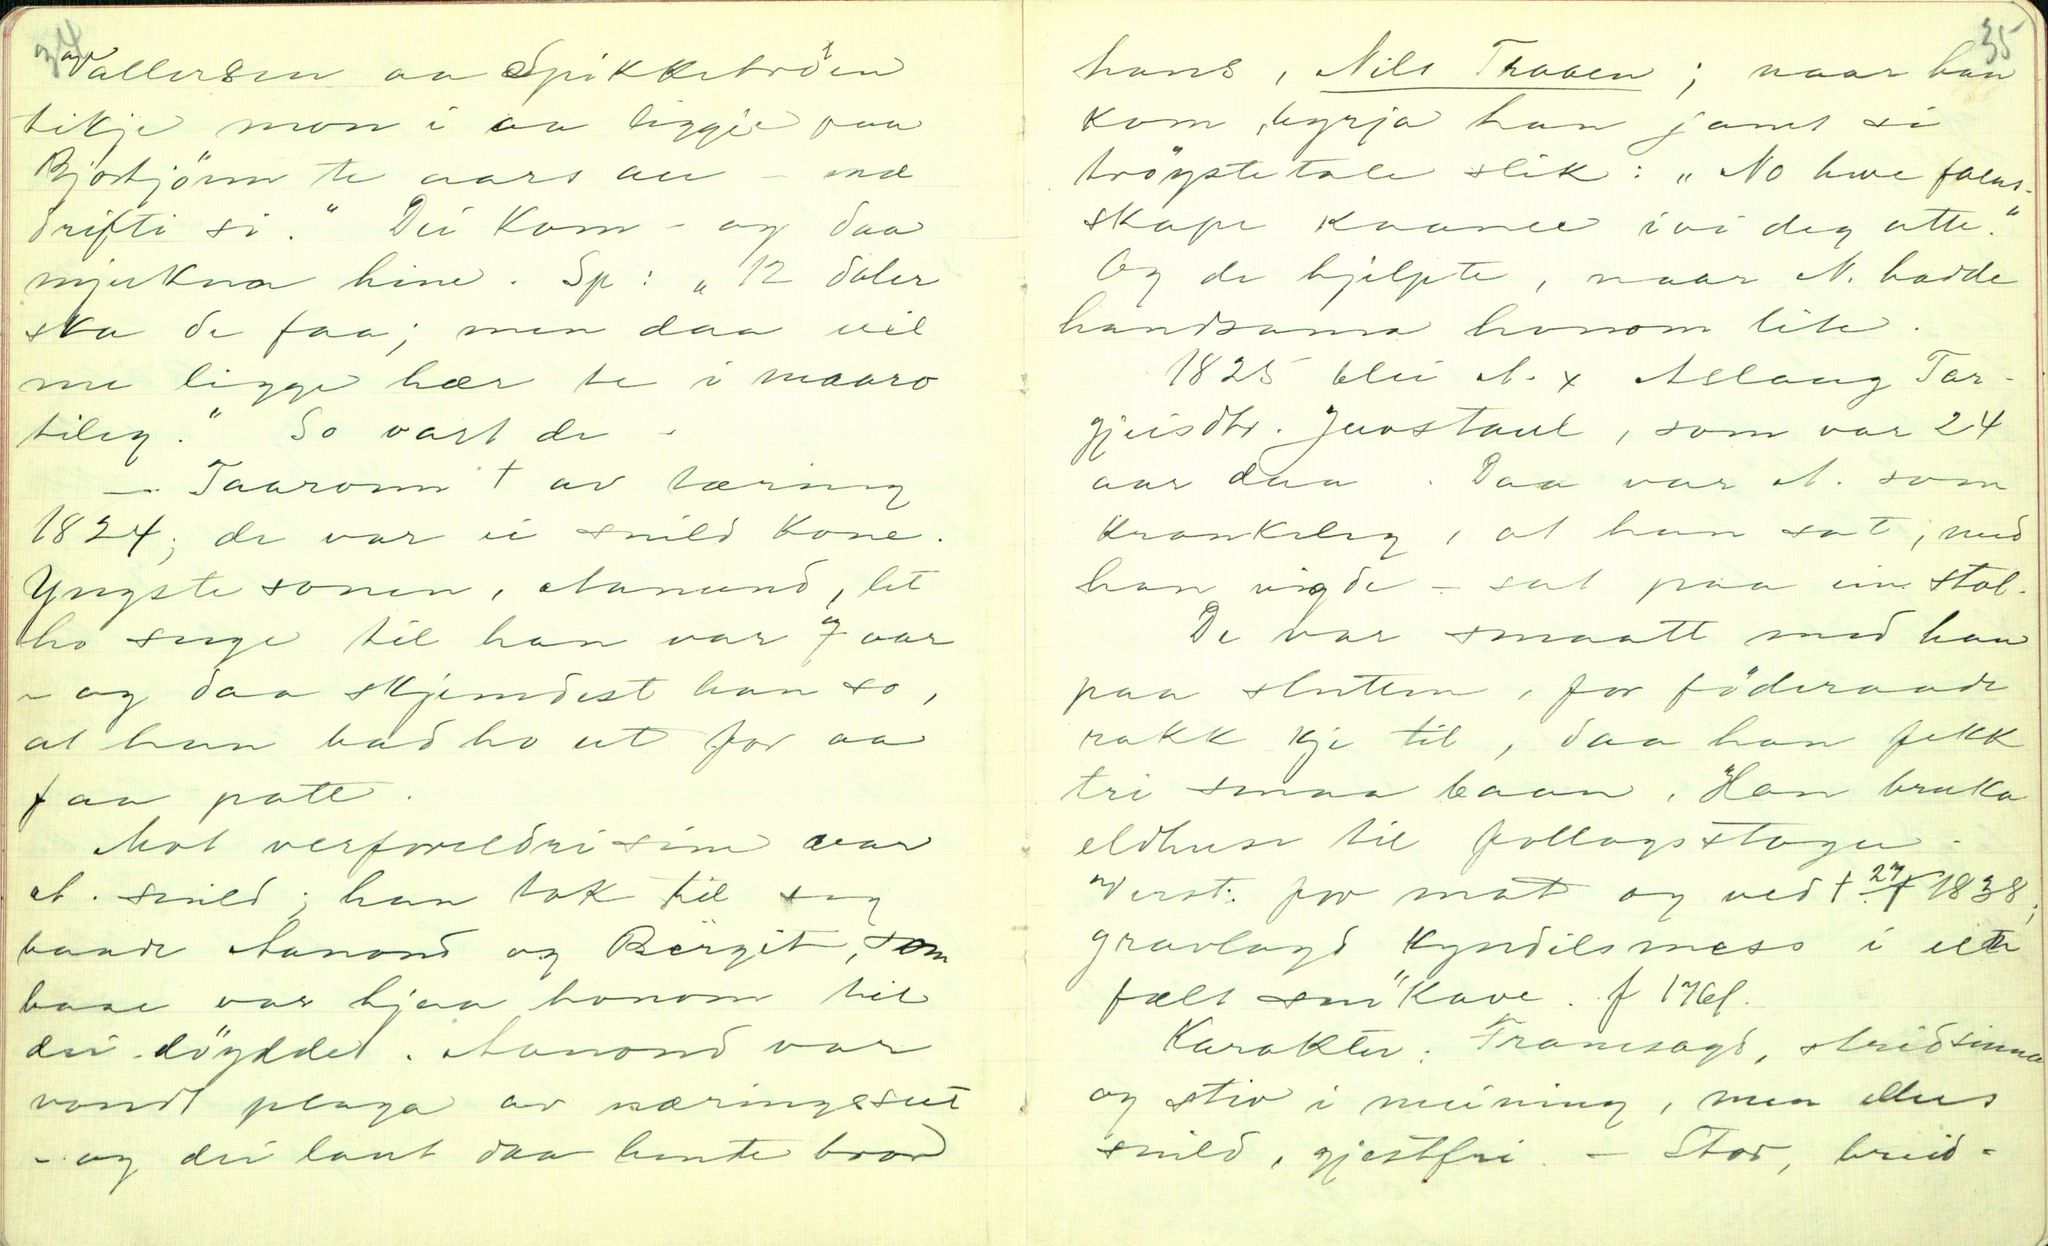 34
Vallersen aa Spikkebrøen
tikje mon i aa liggje paa
Bjortjönn te aars au - mæ
drifti si." Dei kom - og daa
mjukna hine. Sp: „12 daler
ska de faa; men daa vil
me ligge hær te i maaro
tileg." So vart de -
— Taaronn † av tæring
1824; de var ei snild kone.
Yngste sonen, Aanund, let
ho suge til han var 7 aar
- og daa skjemdest han so,
at han bad ho ut for aa
faa patte.
Mot verforeldri sine var
A. snild; han tok til seg
baade Aanond og Bergit, som
baae var hjaa honom til
dei döydde. Aanond var
vondt plaga av næringssut
- og dei laut daa hente bror
35
hans, Nils Traaen; naar han
kom, byrja han jamt si
tröystetale slik: „No hæve faens-
skape kaamee ivi deg atte."
Og de hjelpte, naar N. hadde
handsama honom lite.
1825 blei A. x Aslaug Tar-
gjeisdtr. Juvstaul, som var 24
aar daa. Daa var A. som
krankeleg, at han sat, med
han vigde - sat paa ein stol.
De var smaatt med han
paa sluten, for föderaade
rakk kje til, daa han fekk
tri smaa baan. Han bruka
eldhuse til follogsstoge.
Verst: for mat og ved † 27/1 1838;
gravlagd Kyndilsmess i eit
fælt snökave. f 1761.
Karakter: Framsagd, stridsinna
og stiv i meining, men elles
snild, gjestfri. - Stor, breid-